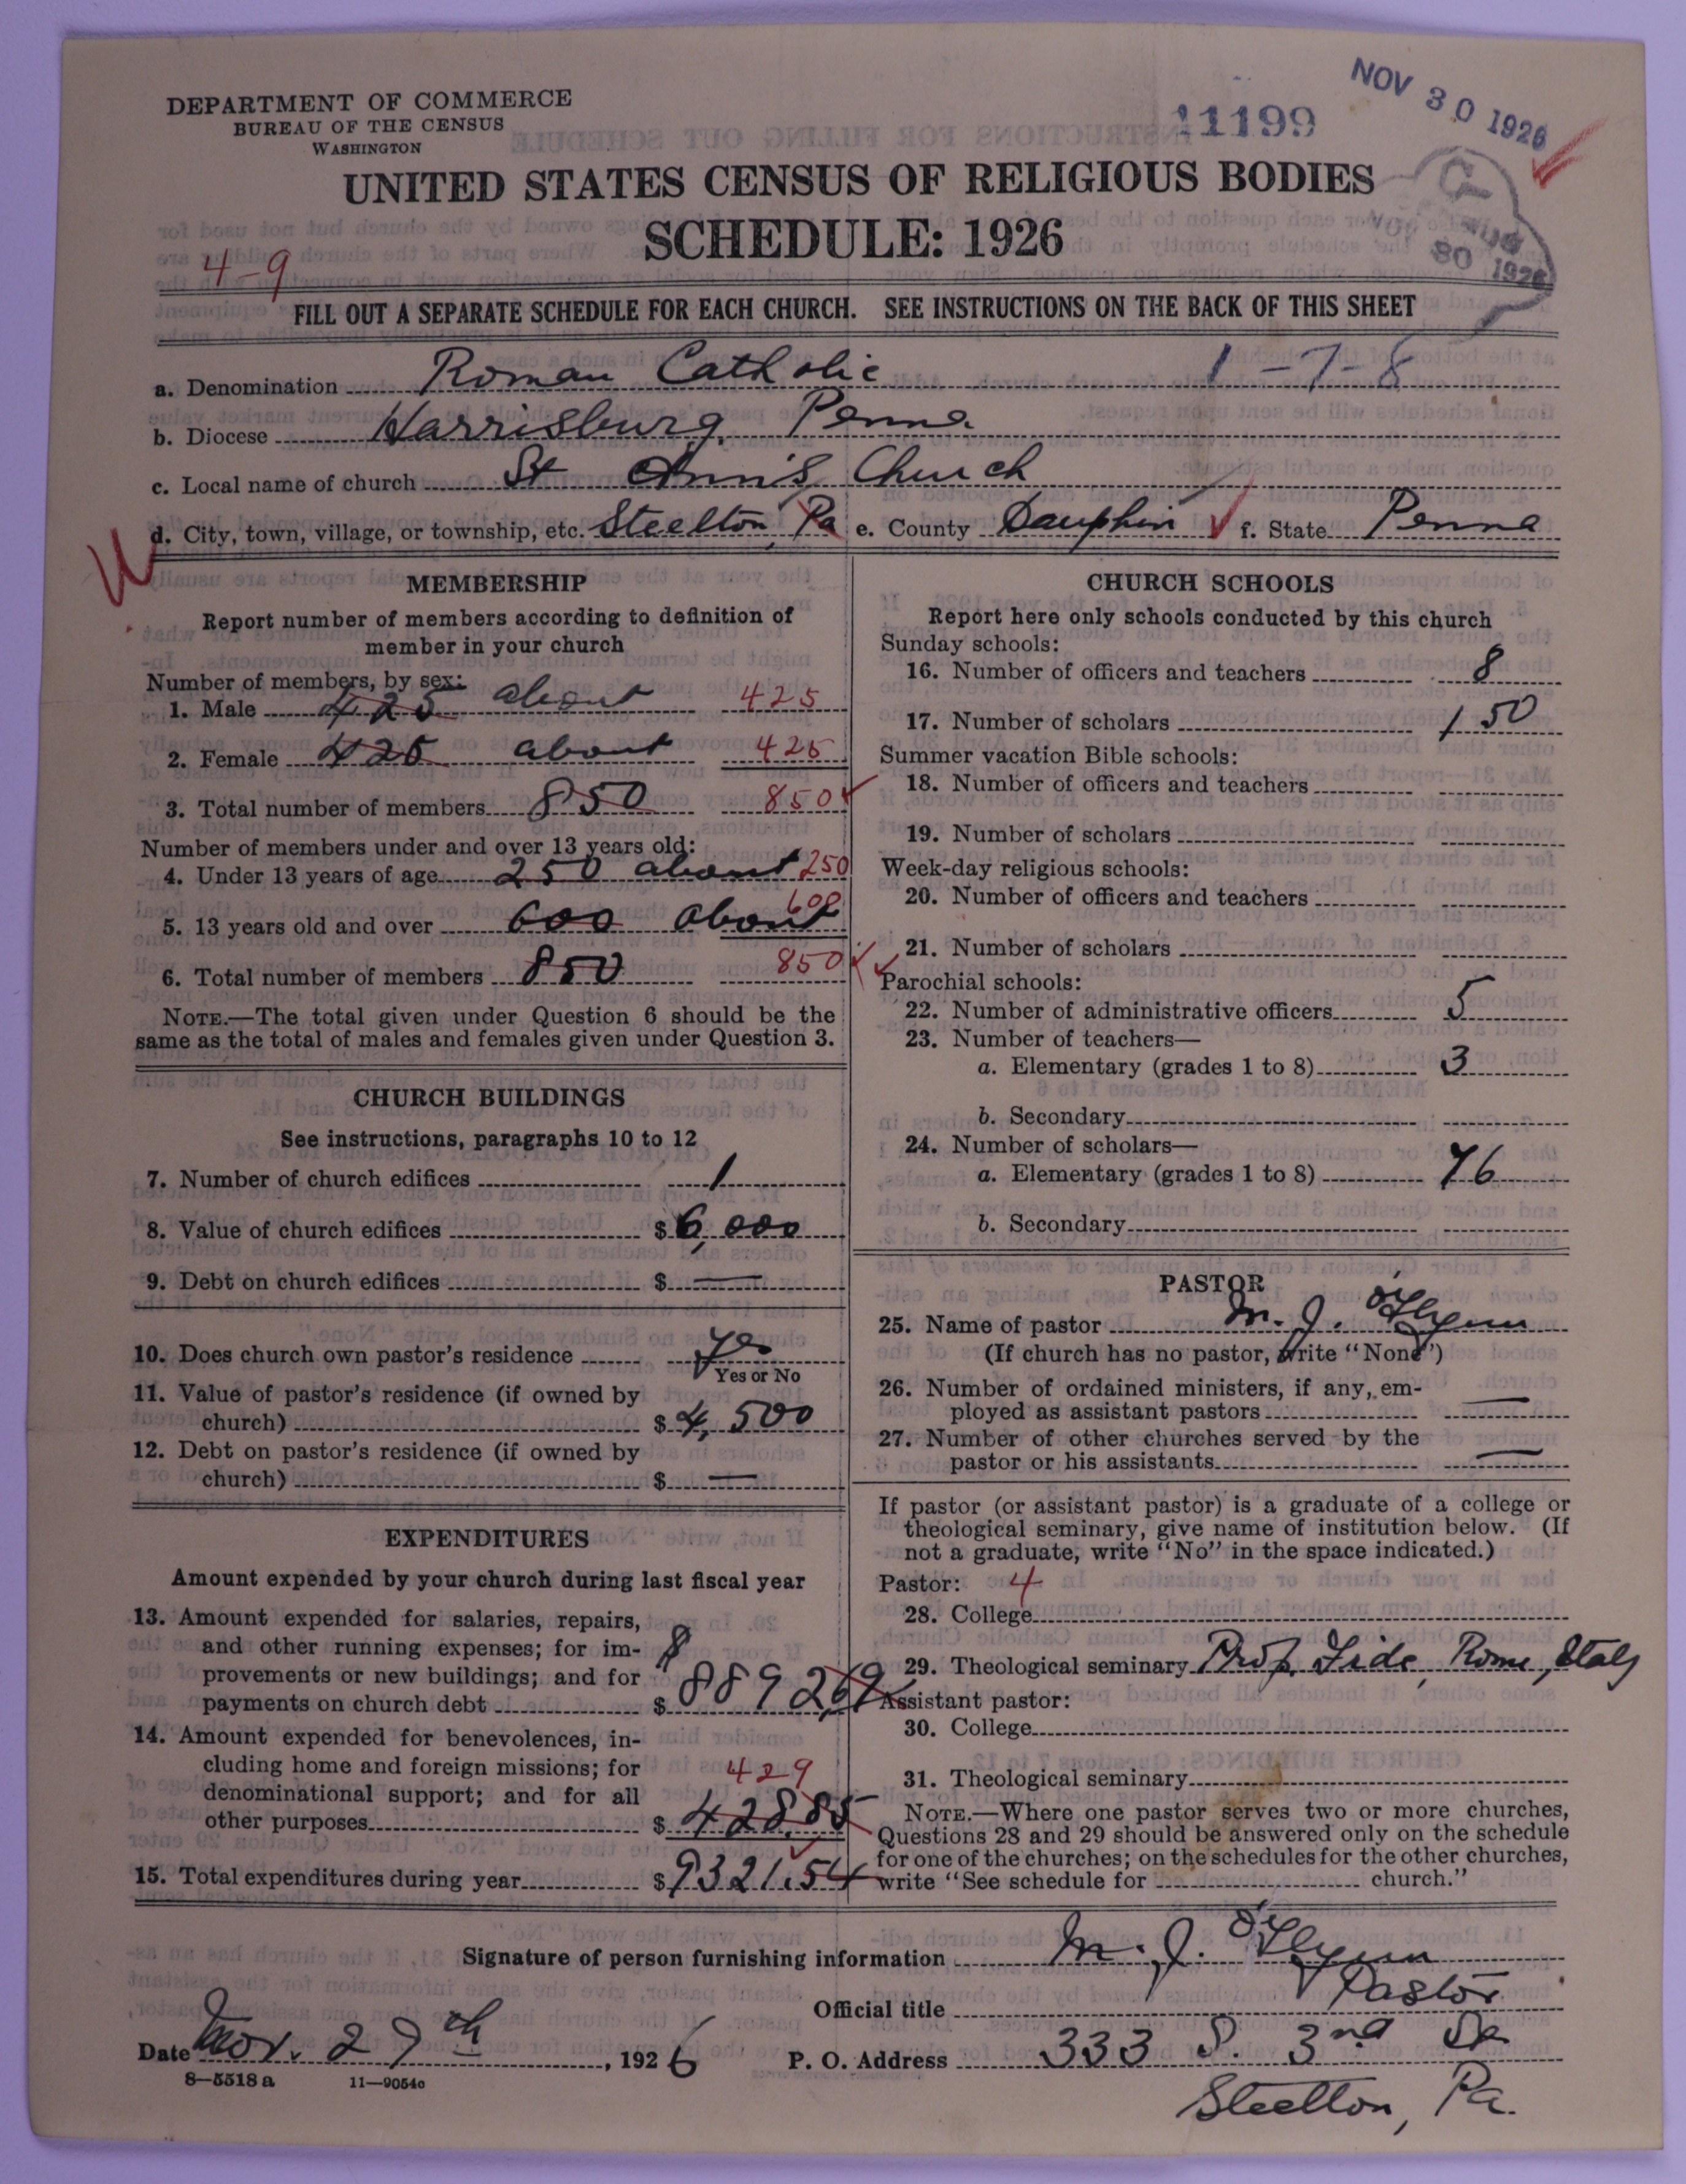 DEPARTMENT OF COMMERCE
BUREAU OF THE CENSUS
WASHINGTON
11199
NOV 30 1926
UNITED STATES CENSUS OF RELIGIOUS BODIES
SCHEDULE: 1926
30 1926
4-9
FILL OUT A SEPARATE SCHEDULE FOR EACH CHURCH. SEE INSTRUCTIONS ON THE BACK OF THIS SHEET
a. Denomination Roman Catholic 1-7-8
b. Diocese Harrisburg, Penna.
c. Local name of church St Ann's Church
d. City, town, village, or township, etc. Steelton, Pa e. County Dauphin f. State Penna
MEMBERSHIP
Report number of members according to definition of
member in your church
Number of members, by sex:
1. Male 425 about 425
2. Female 425 about 425
3. Total number of members 850 850
Number of members under and over 13 years old:
4. Under 13 years of age 250 about 250
5. 13 years old and over 600 about 600
6. Total number of members 850 850
NOTE.—The total given under Question 6 should be the
same as the total of males and females given under Question 3.
CHURCH BUILDINGS
See instructions, paragraphs 10 to 12
7. Number of church edifices 1
8. Value of church edifices $ 6,000
9. Debt on church edifices $ —
10. Does church own pastor's residence Yes
Yes or No
11. Value of pastor's residence (if owned by
church) $ 4,500
12. Debt on pastor's residence (if owned by
church) $ —
EXPENDITURES
Amount expended by your church during last fiscal year
13. Amount expended for salaries, repairs,
and other running expenses; for im-
provements or new buildings; and for
payments on church debt $ 8892.69
14. Amount expended for benevolences, in-
cluding home and foreign missions; for 429
denominational support; and for all
other purposes $ 428.85
15. Total expenditures during year $ 9321.54
CHURCH SCHOOLS
Report here only schools conducted by this church
Sunday schools:
16. Number of officers and teachers 8
17. Number of scholars 150
Summer vacation Bible schools:
18. Number of officers and teachers
19. Number of scholars
Week-day religious schools:
20. Number of officers and teachers
21. Number of scholars
Parochial schools:
22. Number of administrative officers 5
23. Number of teachers—
a. Elementary (grades 1 to 8) 3
b. Secondary
24. Number of scholars—
a. Elementary (grades 1 to 8) 76
b. Secondary
PASTOR
25. Name of pastor M. J. O'Flynn
(If church has no pastor, write "None")
26. Number of ordained ministers, if any, em-
ployed as assistant pastors —
27. Number of other churches served by the
pastor or his assistants —
If pastor (or assistant pastor) is a graduate of a college or
theological seminary, give name of institution below. (If
not a graduate, write "No" in the space indicated.)
Pastor: 4
28. College
29. Theological seminary Prop. Fide, Rome, Italy
Assistant pastor:
30. College
31. Theological seminary
NOTE.—Where one pastor serves two or more churches,
Questions 28 and 29 should be answered only on the schedule
for one of the churches; on the schedules for the other churches,
write "See schedule for church."
Signature of person furnishing information M. J. O'Flynn
Official title Pastor
Date Nov. 27th, 1926 P. O. Address 333 S. 3rd St
8—5518 a 11—9054c
Steelton, Pa.